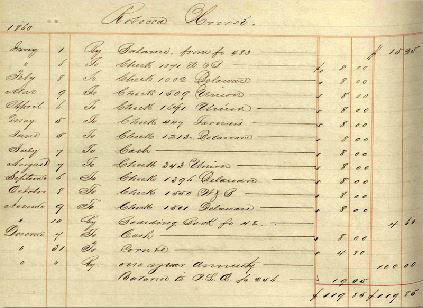 Rebecca Hunt.
1860
Jany 1 By Balance from fo 483 $ 15 35
" 5 To Check 1071 8 00
Feby 8 To Check 1002 Delaware " 8 00
Mar 9 To Check 1609 Union " 8 00
April 6 To Check 1691 Union " 8 00
May 5 To Check 449 Farmers " 8 00
June 5 To Check 1213 Delaware " 8 00
July 7 To Cash " 8 00
August 7 To Check 343 Union " 8 00
Septemb 6 To Check 1396 Delaware " 8 00
October 8 To Check 1550 " 8 00
Novemb 9 To Check 1501 Delaware " 8 00
" 10 By Boarding Book fo 42 4
Decemb 7 To Cash " 8 00
" 31 To " 4
" " By one year Annuity 100 00
Balance to fo